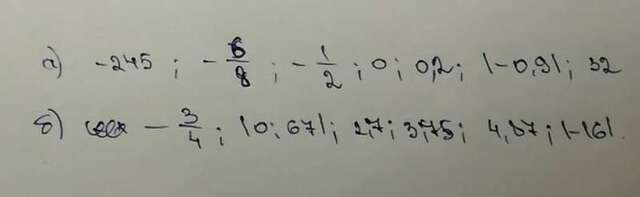 а) -245 ; -6/8 ; -1/2 ; 0 ; 0,2 ; |-0,9| ; 32
б) -3/4 ; |0;67| ; 2,7 ; 3,75 ; 4,87 ; |-16|